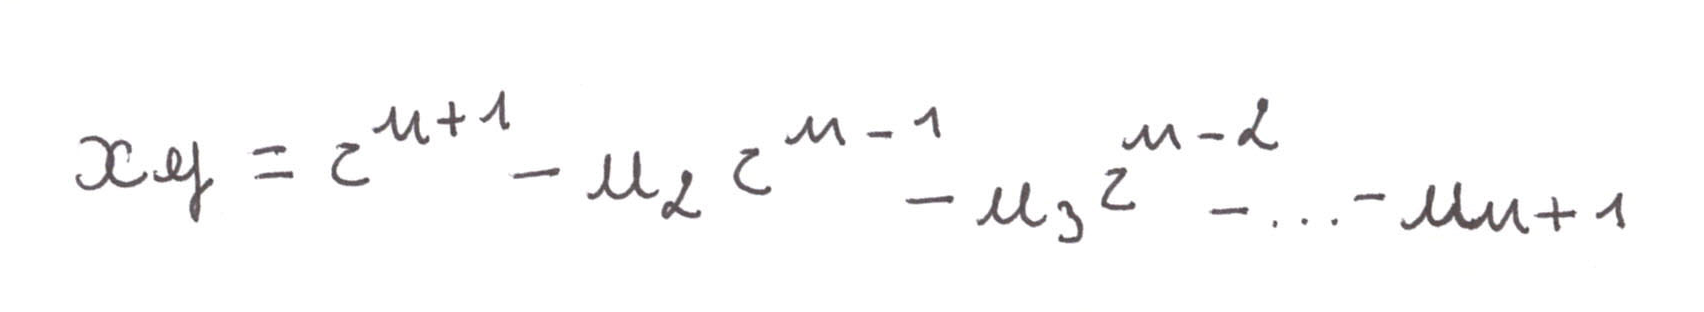 xy = z^{n+1} - u_2 z^{n-1} - u_3 z^{n-2} - ... - u_{n+1}